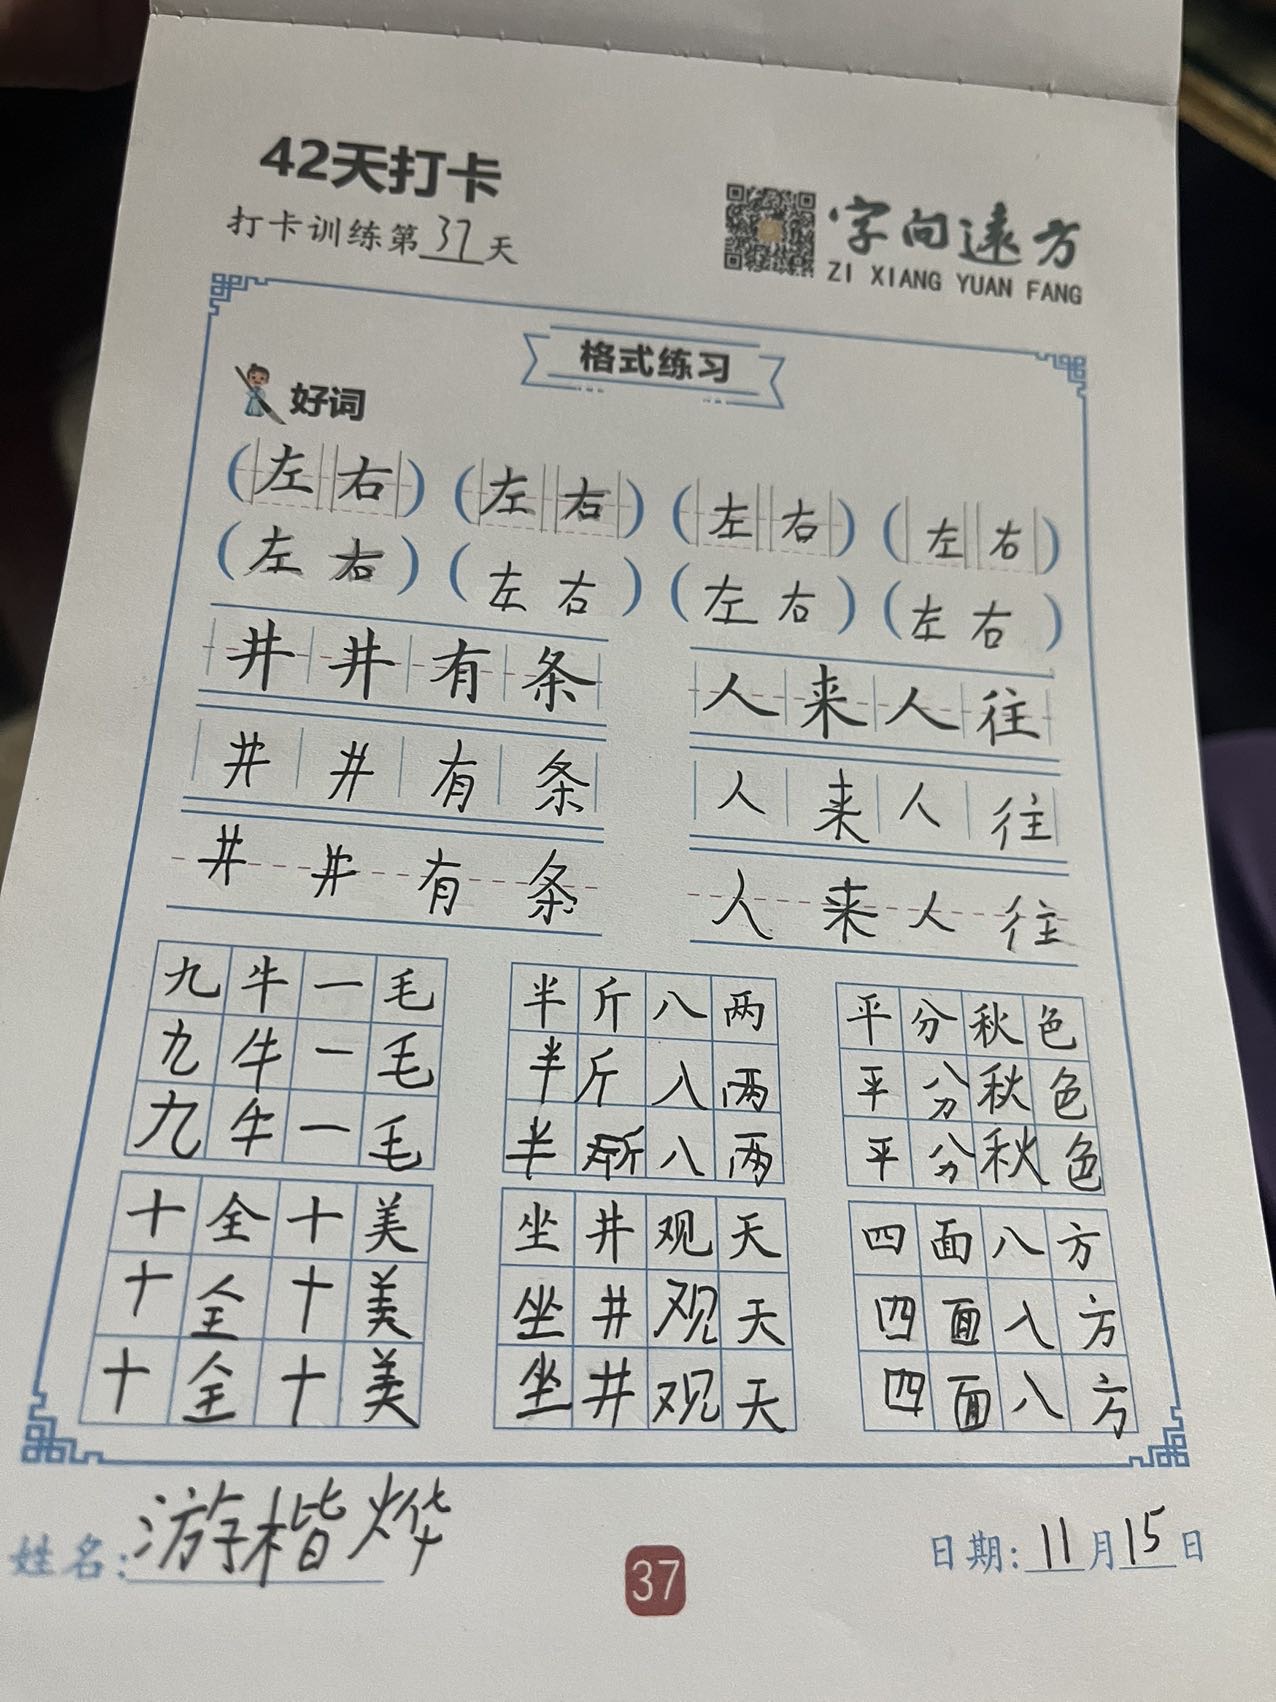 42天打卡
打卡训练第37天
字向远方
ZI XIANG YUAN FANG
格式练习
好词
(左右) (左右) (左右) (左右)
(左右) (左右) (左右) (左右)
井井有条 人来人往
井井有条 人来人往
井井有条 人来人往
九牛一毛 半斤八两 平分秋色
九牛一毛 半斤八两 平分秋色
九牛一毛 半斤八两 平分秋色
十全十美 坐井观天 四面八方
十全十美 坐井观天 四面八方
十全十美 坐井观天 四面八方
姓名:游楷烨
37
日期:11月15日